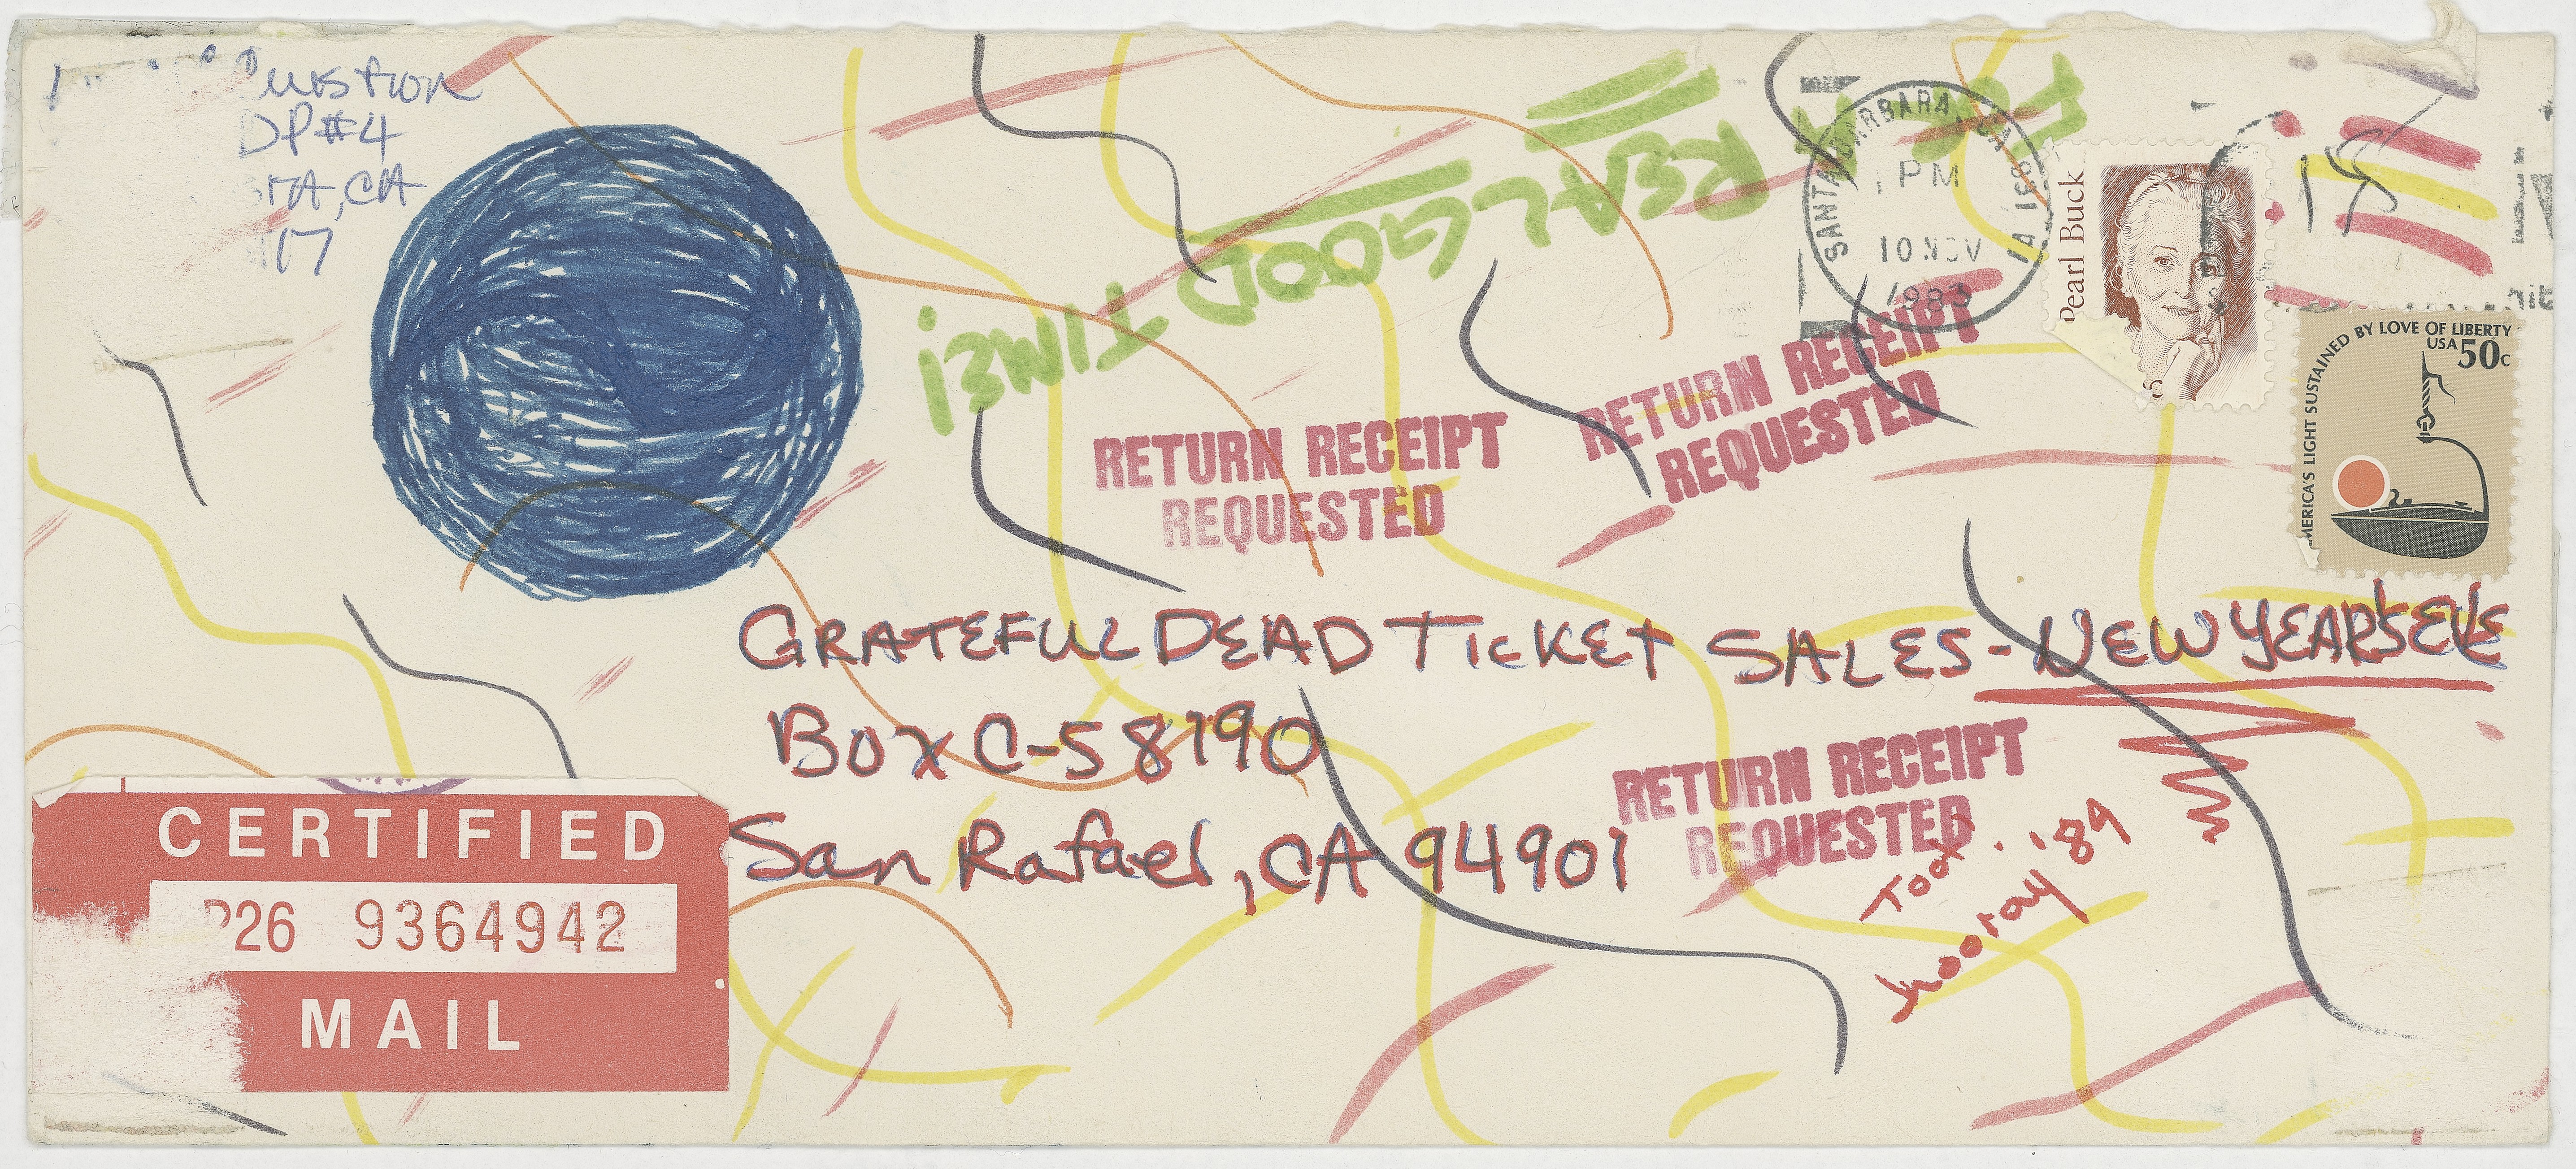 uestion
DP#4
STA, CA
17
FOR A
REAL GOOD TIME!
SANTA BARBARA, CA
PM
10 NOV
1983
Pearl Buck
5
18
AMERICA'S LIGHT SUSTAINED BY LOVE OF LIBERTY
USA 50c
RETURN RECEIPT
REQUESTED
RETURN RECEIPT
REQUESTED
GRATEFUL DEAD TICKET SALES - NEW YEARS EVE
BOX C-S 8190
San Rafael, CA 94901
RETURN RECEIPT
REQUESTED
Too
hooray '84
CERTIFIED
P26 9364942
MAIL